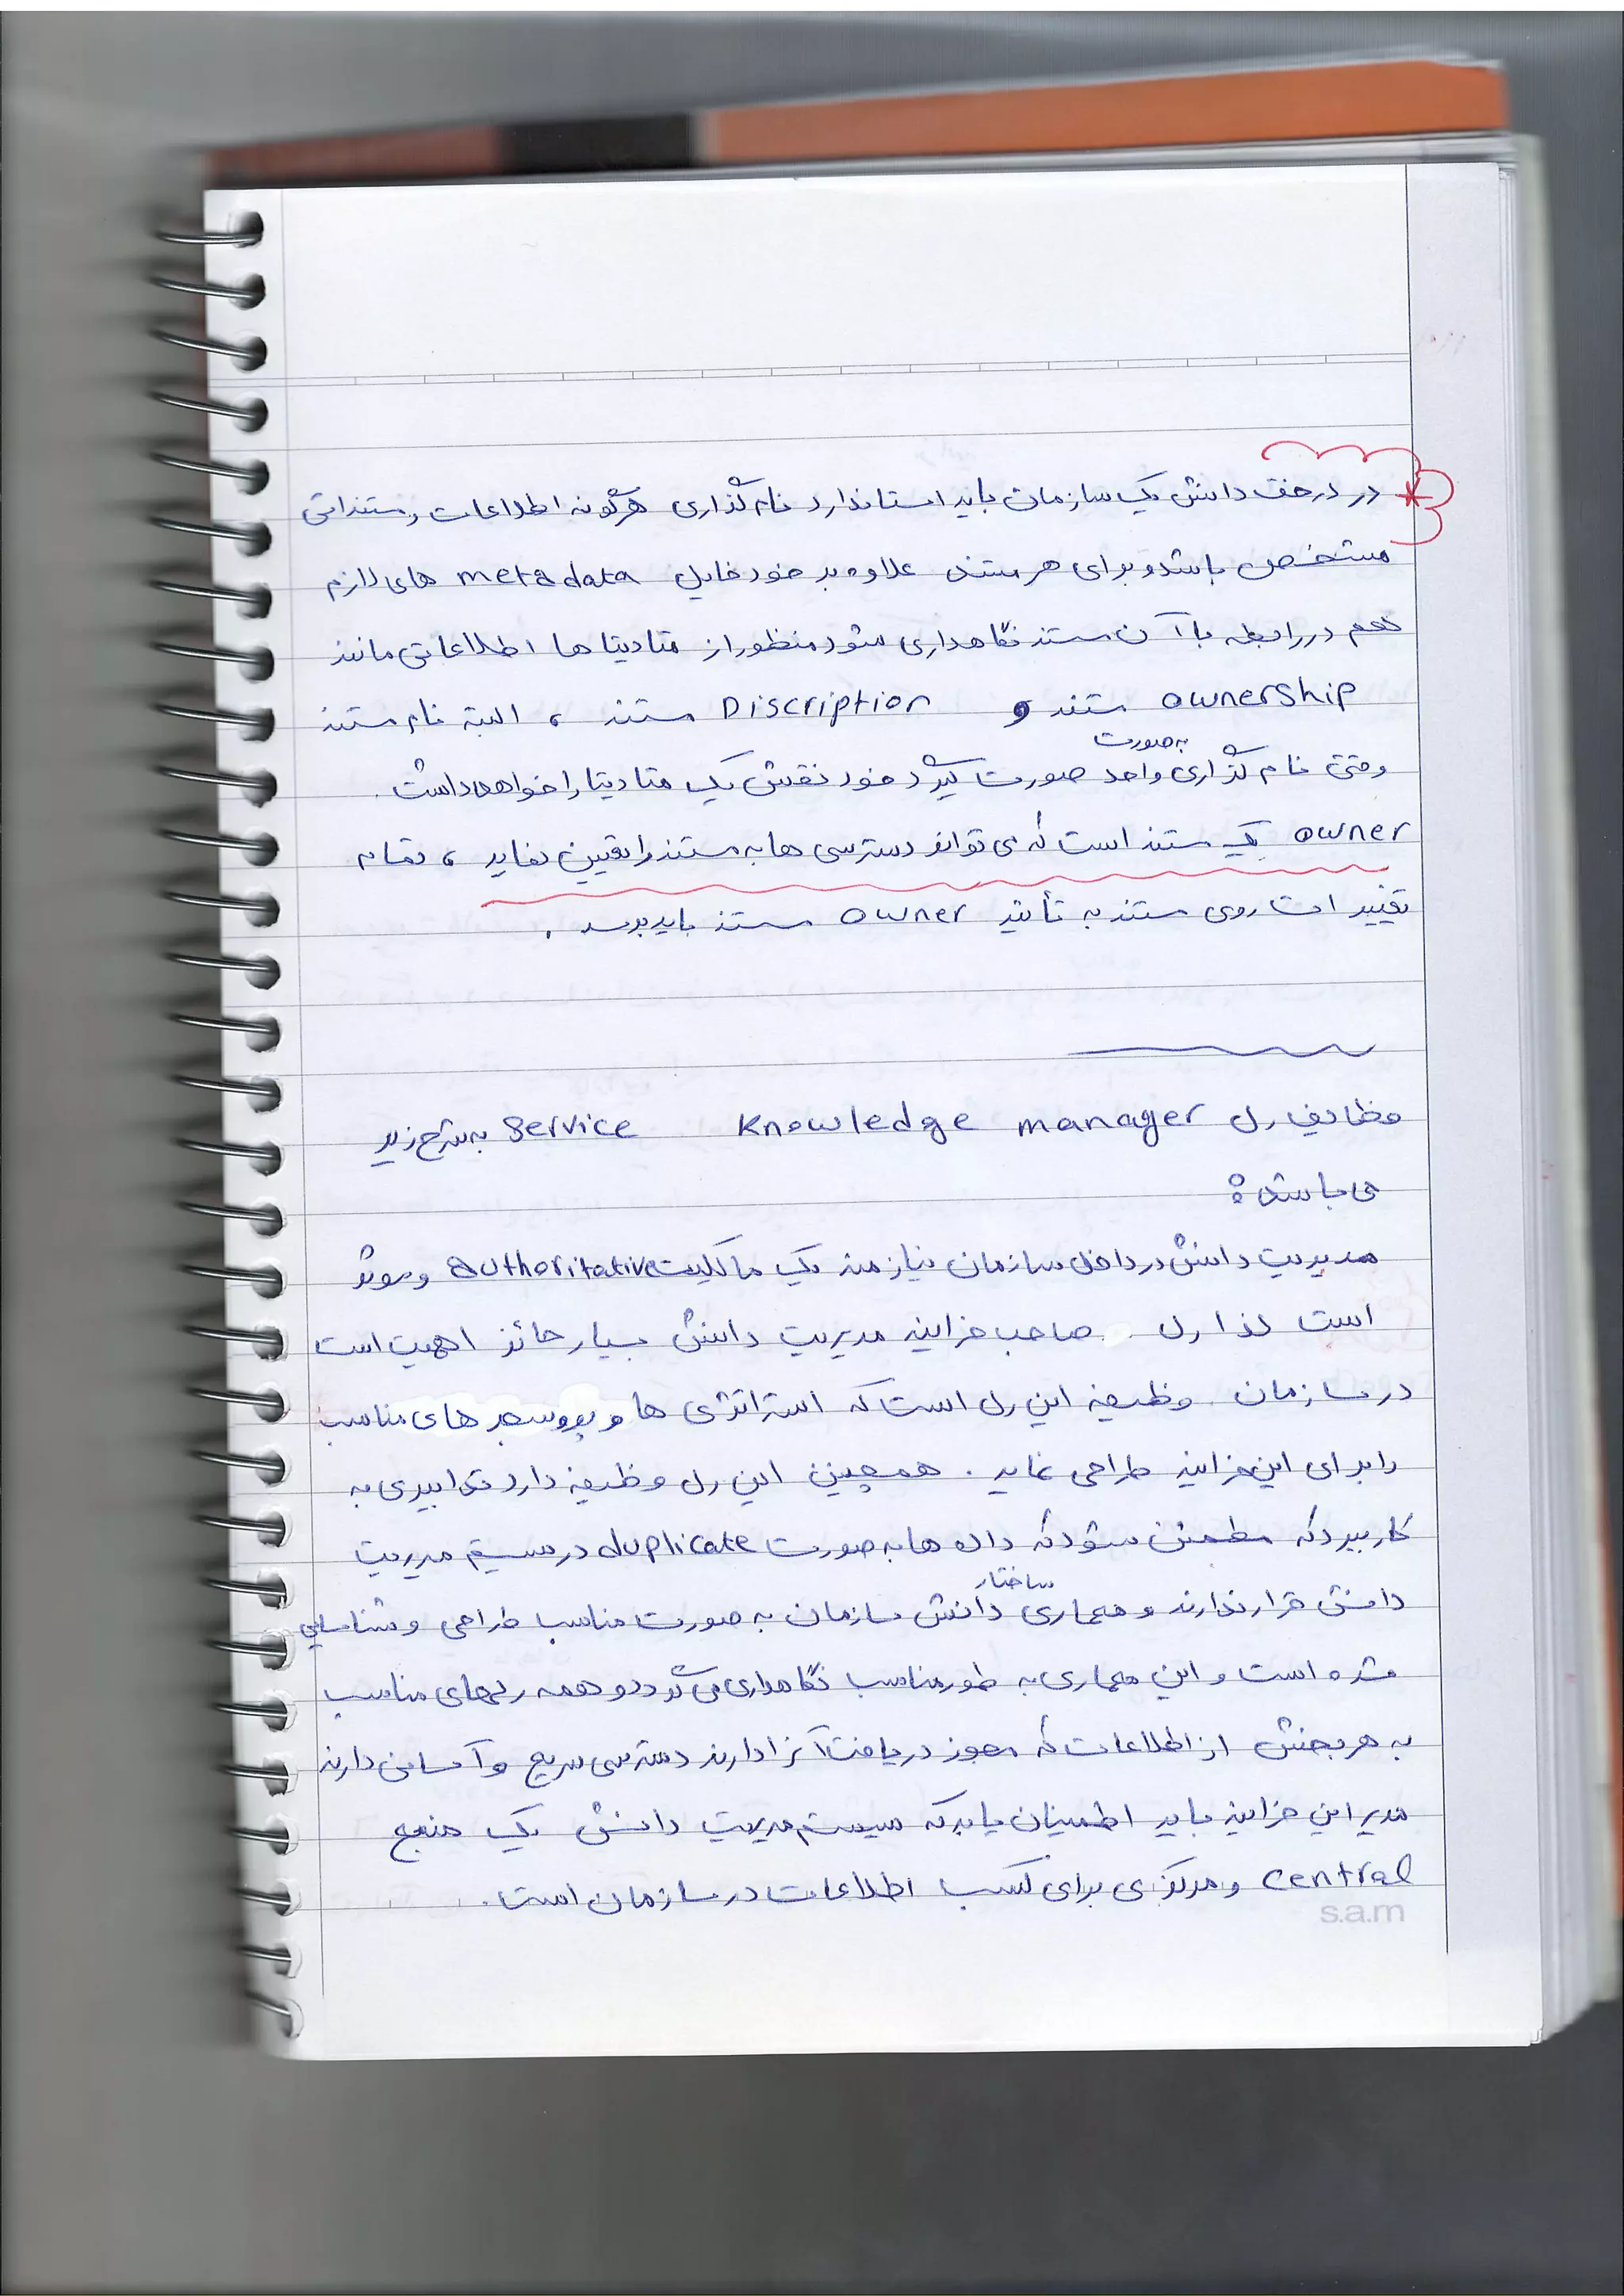 در درخت دانش یک سازمان باید استاندارد نام گذاری هرگونه اطلاعات و مستنداتی
مشخص باشد و برای هر مستند علاوه بر خود فایل metadata های لازم
هم در رابطه با آن مستند نگاهداری شود منظور از متادیتا ها اطلاعاتی مانند
ownership مستند و Discription مستند ، البته نام مستند
به صورت
وقتی نام گذاری واحد صورت گیرد خود نقش یک متادیتا را خواهد داشت .
owner یک مستند است که می تواند دسترسی ها به مستند را تعیین نماید ، تمام
تغییرات روی مستند به تأیید owner مستند باید برسد .
وظایف رل Knowledge manager Service به شرح زیر
می باشد :
مدیریت دانش در داخل سازمان نیازمند یک مالکیت authoritative و موثر
است لذا رل صاحب خزانه مدیریت دانش بسیار حائز اهمیت است
در سازمان . وظیفه این رل است که استراتژی ها و پروسیجر های مناسب
را برای این خزانه طراحی نماید . همچنین این رل وظیفه دارد تدابیری به
کار ببرد که مطمئن شود که داده ها به صورت duplicate در سیستم مدیریت
ساختار
دانش قرار ندارند و معماری دانش سازمان به صورت مناسب طراحی و شناسایی
شده است و این معماری به طور مناسب نگاهداری می شود و همه رلهای مناسب
به هر بخش از اطلاعات که مجوز دریافت آنرا دارند دسترسی سریع و آسانی دارند
مدیر این خزانه باید اطمینان یابد که سیستم مدیریت دانش یک منبع
central و مرکزی برای کسب اطلاعات در سازمان است .
s.a.m